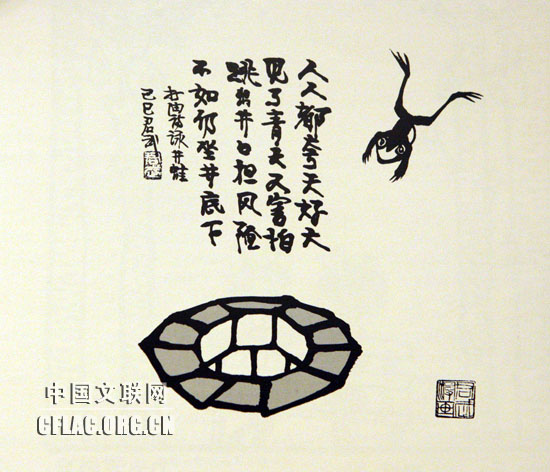 人人都夸天好大
见了青天又害怕
跳出井口担风险
不如仍坐井底下
诗咏井蛙
己巳君武
中国文联网
CFLAC.ORG.CN